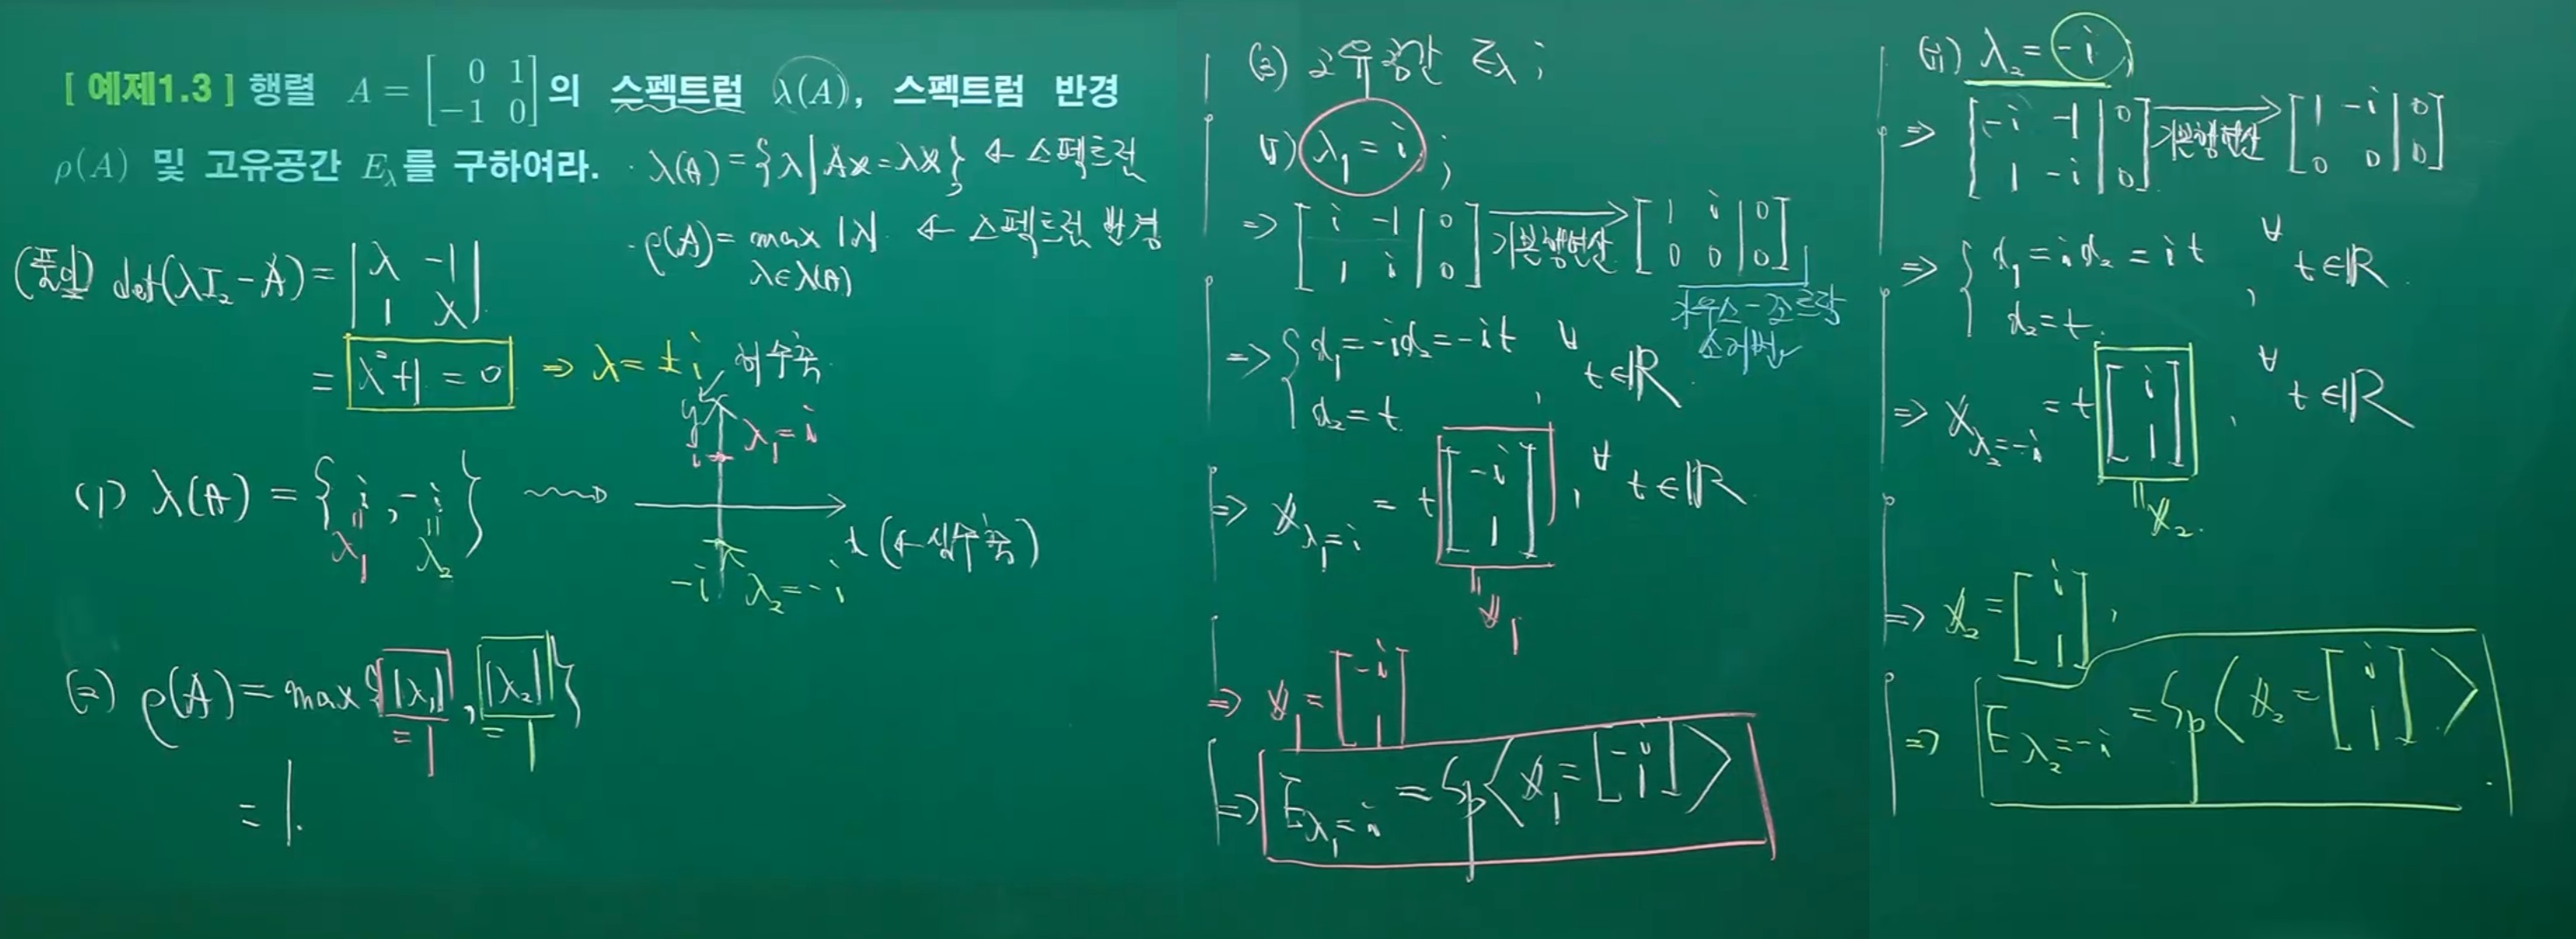 [ 예제1.3 ] 행렬 A = [ 0 1 ; -1 0 ] 의 스펙트럼 λ(A), 스펙트럼 반경
ρ(A) 및 고유공간 E_λ를 구하여라.
· λ(A) = {λ | Ax = λx} ← 스펙트럼
· ρ(A) = max |λ| ← 스펙트럼 반경
λ∈λ(A)
(풀이) det(λI₂ - A) = | λ -1 ; 1 λ |
= λ² + 1 = 0 ⇒ λ = ± i
허수축
y
λ₁ = i
i
(1) λ(A) = { i, -i }
λ₁ λ₂
x (← 실수축)
-i λ₂ = -i
(2) ρ(A) = max { |λ₁|, |λ₂| }
= 1 = 1
= 1.
(3) 고유공간 E_λ ;
(i) λ₁ = i ;
⇒ [ i -1 | 0 ; 1 i | 0 ] 기본행연산 → [ 1 i | 0 ; 0 0 | 0 ]
가우스-조르당
소거법
⇒ { x₁ = -ix₂ = -it
x₂ = t , ∀t∈ℝ.
⇒ x_{λ₁=i} = t [ -i ; 1 ] , ∀t∈ℝ
" x₁
⇒ x₁ = [ -i ; 1 ]
⇒ E_{λ₁=i} = Sp⟨ x₁ = [ -i ; 1 ] ⟩
(ii) λ₂ = -i ;
⇒ [ -i -1 | 0 ; 1 -i | 0 ] 기본행연산 → [ 1 -i | 0 ; 0 0 | 0 ]
⇒ { x₁ = ix₂ = it
x₂ = t. , ∀t∈ℝ
⇒ x_{λ₂=-i} = t [ i ; 1 ] , ∀t∈ℝ
" x₂.
⇒ x₂ = [ i ; 1 ] ,
⇒ E_{λ₂=-i} = Sp⟨ x₂ = [ i ; 1 ] ⟩